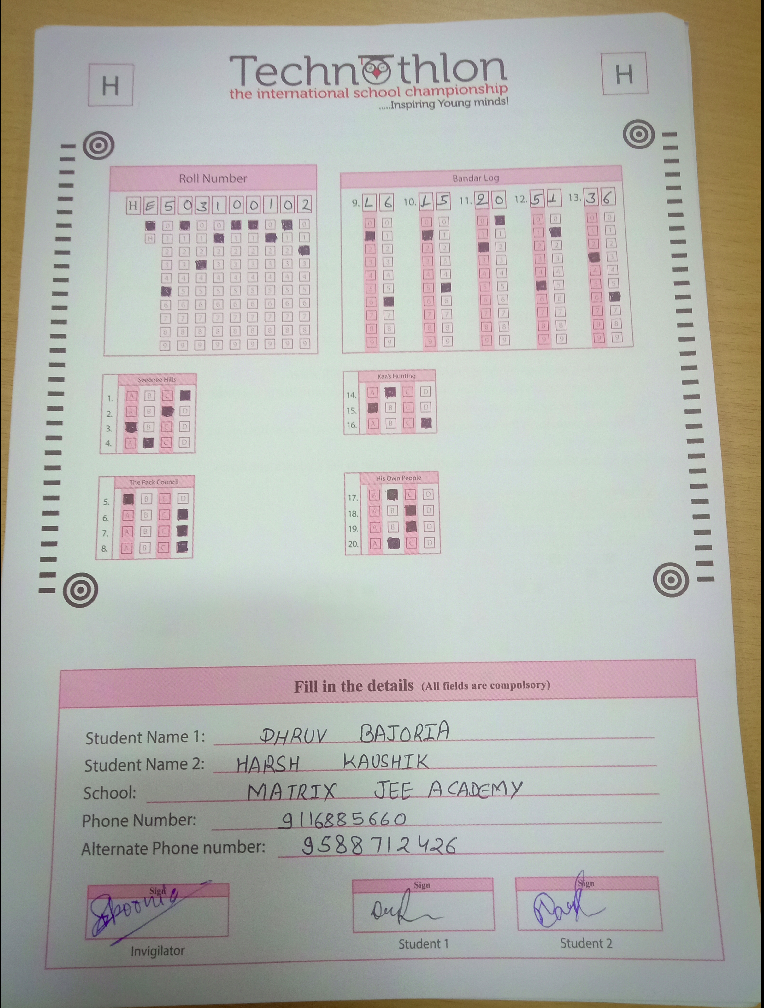 H
Technothlon
H
the international school championship
.....Inspiring Young minds!
Roll Number
H E 5 0 3 1 0 0 1 0 2
Bandar Log
9. 1 6 10. 1 5 11. 2 0 12. 5 1 13. 3 6
Seeonee Hills
1.
2.
3.
4.
Kaa's Hunting
14.
15.
16.
The Pack Council
5.
6.
7.
8.
His Own People
17.
18.
19.
20.
Fill in the details (All fields are compulsory)
Student Name 1: DHRUV BAJORIA
Student Name 2: HARSH KAUSHIK
School: MATRIX JEE ACADEMY
Phone Number: 9116885660
Alternate Phone number: 9588712426
Sign Sign Sign
Invigilator Student 1 Student 2